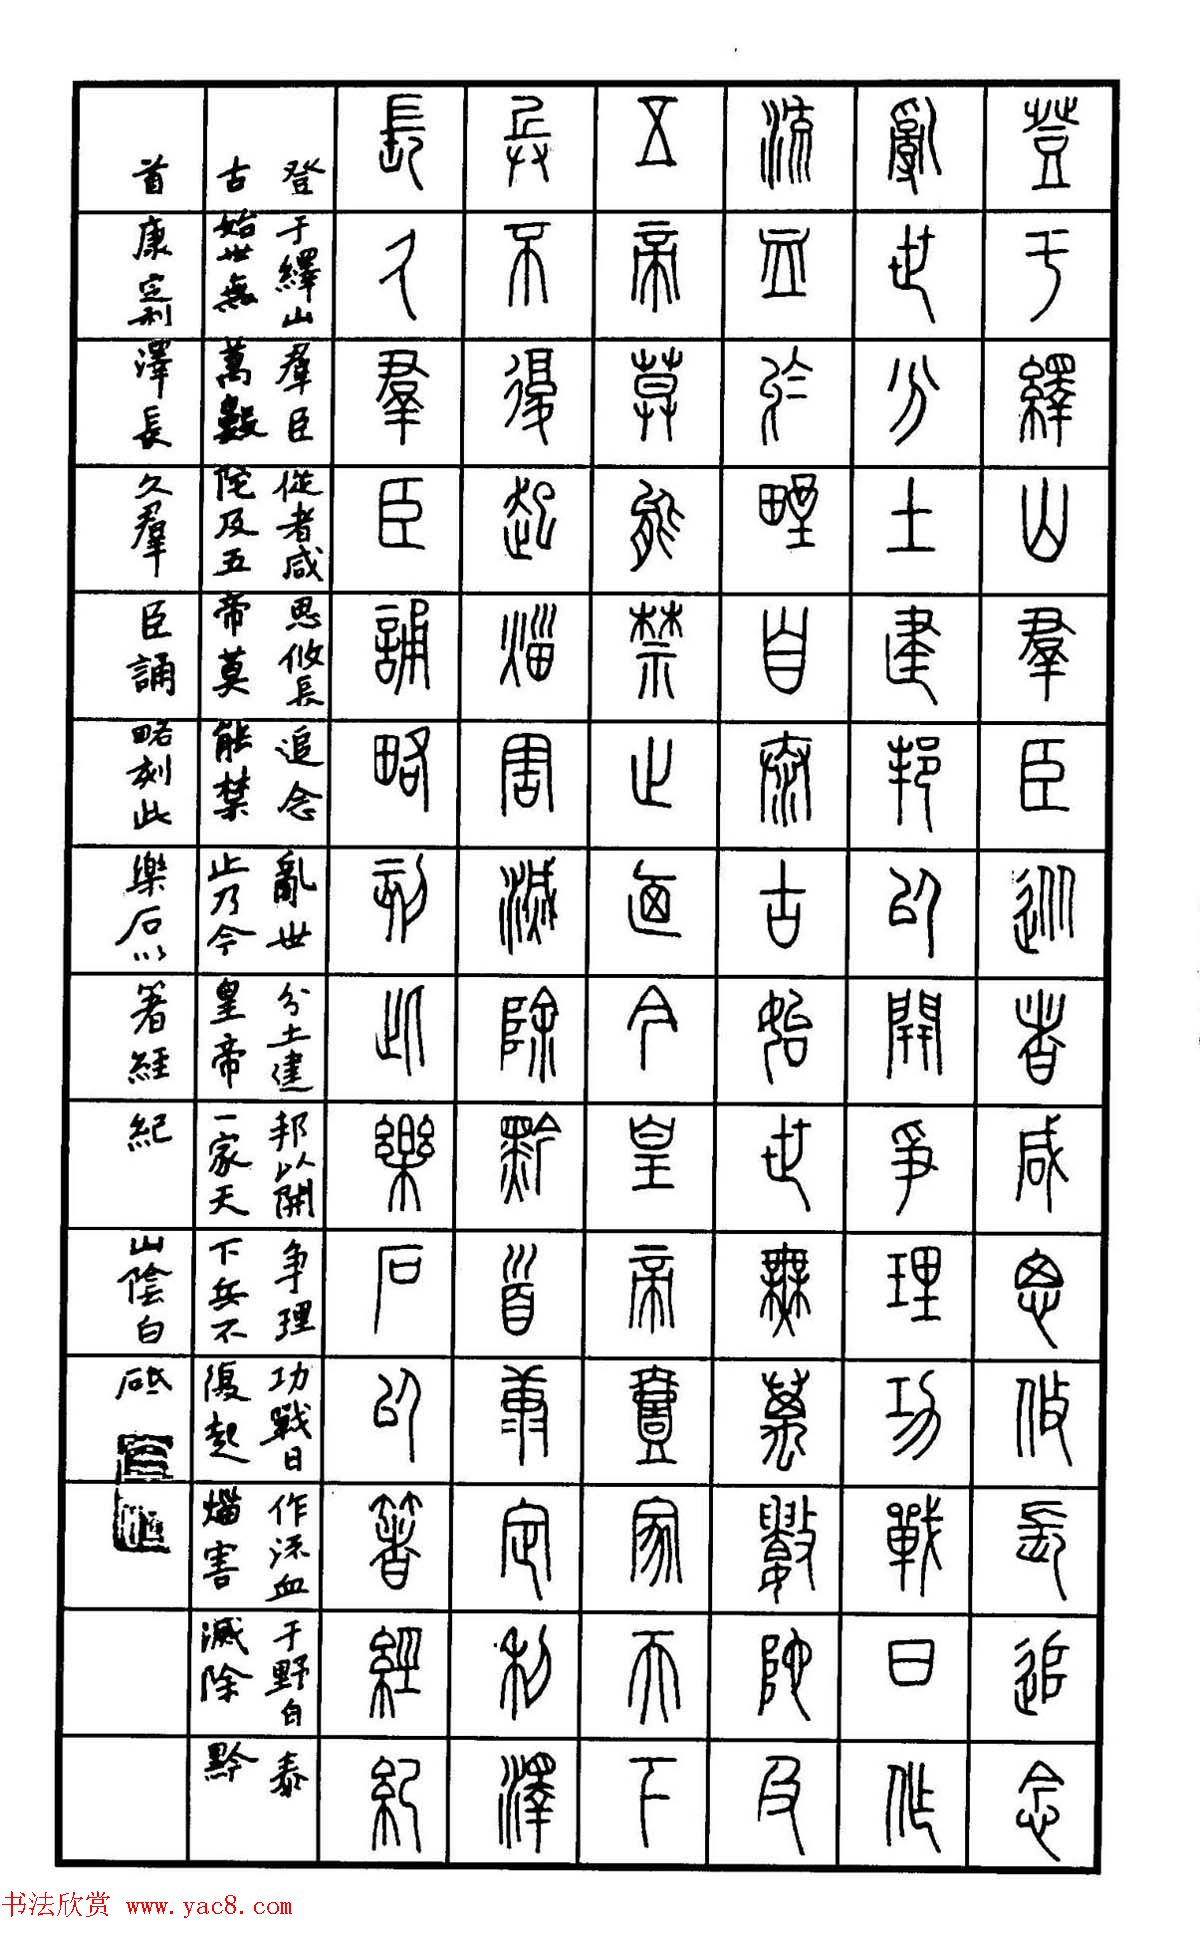 登于繹山羣臣從者咸思攸長追念
亂世分土建邦以開爭理功戰日作
流血於野自泰古始世無萬數阤及
五帝莫能禁止迺今皇帝壹家天下
兵不復起害滅除黔首康定利澤
長久羣臣誦略刻此樂石以著經紀
登于繹山羣臣從者咸思攸長追念亂世分土建邦以開争理功戰日作流血于野自泰
古始世無萬數陀及五帝莫能禁止乃今皇帝一家天下兵不復起害滅除黔
首康定利澤長久羣臣誦略刻此樂石以箸經紀 山陰白砥
书法欣赏 www.yac8.com